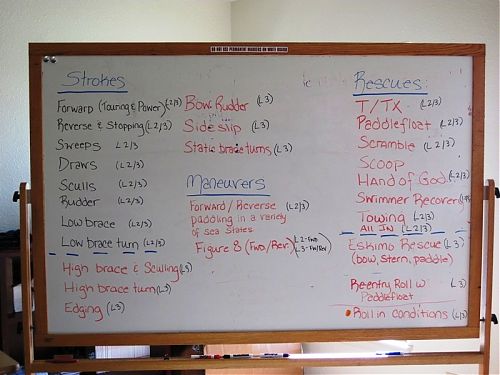 DO NOT USE PERMANENT MARKERS ON WHITE BOARD
Strokes
Forward (Touring & Power) (L2/3)
Reverse & Stopping (L2/3)
Sweeps L2/3
Draws (L2/3)
Sculls (L2/3)
Rudder (L2/3)
Low brace (L2/3)
Low brace turn (L2/3)
High brace & Sculling (L3)
High brace turn (L3)
Edging (L3)
Bow Rudder (L3)
Side slip (L3)
Static brace turns (L3)
Maneuvers
Forward/Reverse
paddling in a variety
of sea states
Figure 8 (Fwd/Rev) L2-Fwd
L3-Fw/Rev
Rescues
T/TX (L2/3)
Paddlefloat (L2/3)
Scramble (L2/3)
Scoop
Hand of God (L2/3)
Swimmer Recover
Towing (L2/3)
All In (L2/3)
Eskimo Rescue (L3)
(bow, stern, paddle)
Reentry Roll w L3)
Paddlefloat
Roll in conditions (L3)